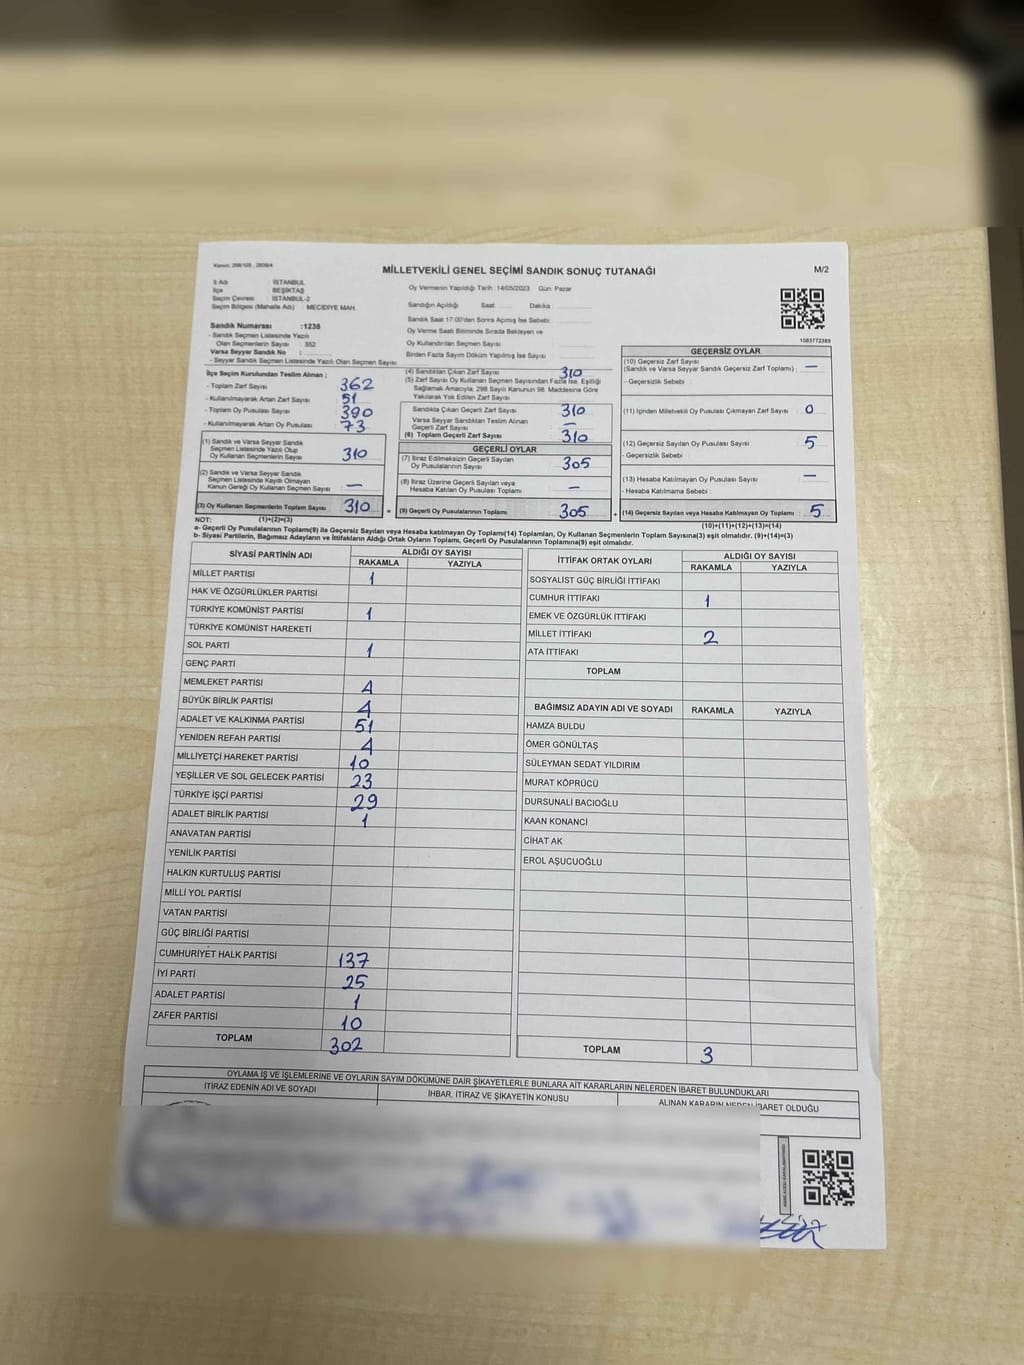 Kanun: 298/105 , 2839/4
MİLLETVEKİLİ GENEL SEÇİMİ SANDIK SONUÇ TUTANAĞI
M/2
İl Adı : İSTANBUL
İlçe : BEŞİKTAŞ
Seçim Çevresi : İSTANBUL-2
Seçim Bölgesi (Mahalle Adı) : MECİDİYE MAH.
Oy Vermenin Yapıldığı Tarih :14/05/2023 Gün: Pazar
Sandığın Açıldığı Saat Dakika :
Sandık Saat 17:00'den Sonra Açılmış İse Sebebi :
Oy Verme Saati Bitiminde Sırada Bekleyen ve
Oy Kullandırılan Seçmen Sayısı
Birden Fazla Sayım Döküm Yapılmış İse Sayısı
1083772389
Sandık Numarası :1238
- Sandık Seçmen Listesinde Yazılı
Olan Seçmenlerin Sayısı : 352
Varsa Seyyar Sandık No :
- Seyyar Sandık Seçmen Listesinde Yazılı Olan Seçmen Sayısı
İlçe Seçim Kurulundan Teslim Alınan ;
- Toplam Zarf Sayısı 362
- Kullanılmayarak Artan Zarf Sayısı 51
- Toplam Oy Pusulası Sayısı 390
- Kullanılmayarak Artan Oy Pusulası 73
(1) Sandık ve Varsa Seyyar Sandık
Seçmen Listesinde Yazılı Olup
Oy Kullanan Seçmenlerin Sayısı 310
(2) Sandık ve Varsa Seyyar Sandık
Seçmen Listesinde Kayıtlı Olmayan
Kanun Gereği Oy Kullanan Seçmen Sayısı —
(3) Oy Kullanan Seçmenlerin Toplam Sayısı 310 =
(4) Sandıktan Çıkan Zarf Sayısı 310
(5) Zarf Sayısı Oy Kullanan Seçmen Sayısından Fazla İse, Eşitliği
Sağlamak Amacıyla, 298 Sayılı Kanunun 98. Maddesine Göre
Yakılarak Yok Edilen Zarf Sayısı
Sandıkta Çıkan Geçerli Zarf Sayısı 310
Varsa Seyyar Sandıktan Teslim Alınan
Geçerli Zarf Sayısı —
(6) Toplam Geçerli Zarf Sayısı 310
GEÇERLİ OYLAR
(7) İtiraz Edilmeksizin Geçerli Sayılan
Oy Pusulalarının Sayısı 305
(8) İtiraz Üzerine Geçerli Sayılan veya
Hesaba Katılan Oy Pusulası Toplamı —
(9) Geçerli Oy Pusulalarının Toplamı 305 +
GEÇERSİZ OYLAR
(10) Geçersiz Zarf Sayısı
(Sandık ve Varsa Seyyar Sandık Geçersiz Zarf Toplamı) : —
- Geçersizlik Sebebi :
(11) İçinden Milletvekili Oy Pusulası Çıkmayan Zarf Sayısı : 0
(12) Geçersiz Sayılan Oy Pusulası Sayısı : 5
- Geçersizlik Sebebi :
(13) Hesaba Katılmayan Oy Pusulası Sayısı : —
- Hesaba Katılmama Sebebi :
(14) Geçersiz Sayılan veya Hesaba Katılmayan Oy Toplamı : 5
NOT: (1)+(2)=(3) (10)+(11)+(12)+(13)=(14)
a- Geçerli Oy Pusulalarının Toplamı(9) ile Geçersiz Sayılan veya Hesaba katılmayan Oy Toplam(14) Toplamları, Oy Kullanan Seçmenlerin Toplam Sayısına(3) eşit olmalıdır. (9)+(14)=(3)
b- Siyasi Partilerin, Bağımsız Adayların ve İttifakların Aldığı Ortak Oyların Toplamı, Geçerli Oy Pusulalarının Toplamına(9) eşit olmalıdır.
SİYASİ PARTİNİN ADI ALDIĞI OY SAYISI
RAKAMLA YAZIYLA
MİLLET PARTİSİ 1
HAK VE ÖZGÜRLÜKLER PARTİSİ
TÜRKİYE KOMÜNİST PARTİSİ 1
TÜRKİYE KOMÜNİST HAREKETİ
SOL PARTİ 1
GENÇ PARTİ
MEMLEKET PARTİSİ 4
BÜYÜK BİRLİK PARTİSİ 4
ADALET VE KALKINMA PARTİSİ 51
YENİDEN REFAH PARTİSİ 4
MİLLİYETÇİ HAREKET PARTİSİ 10
YEŞİLLER VE SOL GELECEK PARTİSİ 23
TÜRKİYE İŞÇİ PARTİSİ 29
ADALET BİRLİK PARTİSİ 1
ANAVATAN PARTİSİ
YENİLİK PARTİSİ
HALKIN KURTULUŞ PARTİSİ
MİLLİ YOL PARTİSİ
VATAN PARTİSİ
GÜÇ BİRLİĞİ PARTİSİ
CUMHURİYET HALK PARTİSİ 137
İYİ PARTİ 25
ADALET PARTİSİ 1
ZAFER PARTİSİ 10
TOPLAM 302
İTTİFAK ORTAK OYLARI ALDIĞI OY SAYISI
RAKAMLA YAZIYLA
SOSYALİST GÜÇ BİRLİĞİ İTTİFAKI
CUMHUR İTTİFAKI 1
EMEK VE ÖZGÜRLÜK İTTİFAKI
MİLLET İTTİFAKI 2
ATA İTTİFAKI
TOPLAM
BAĞIMSIZ ADAYIN ADI VE SOYADI RAKAMLA YAZIYLA
HAMZA BULDU
ÖMER GÖNÜLTAŞ
SÜLEYMAN SEDAT YILDIRIM
MURAT KÖPRÜCÜ
DURSUNALİ BACIOĞLU
KAAN KONANCİ
CİHAT AK
EROL AŞUCUOĞLU
TOPLAM 3
OYLAMA İŞ VE İŞLEMLERİNE VE OYLARIN SAYIM DÖKÜMÜNE DAİR ŞİKAYETLERLE BUNLARA AİT KARARLARIN NELERDEN İBARET BULUNDUKLARI
İTİRAZ EDENİN ADI VE SOYADI İHBAR, İTİRAZ VE ŞİKAYETİN KONUSU ALINAN KARARIN NEDEN İBARET OLDUĞU